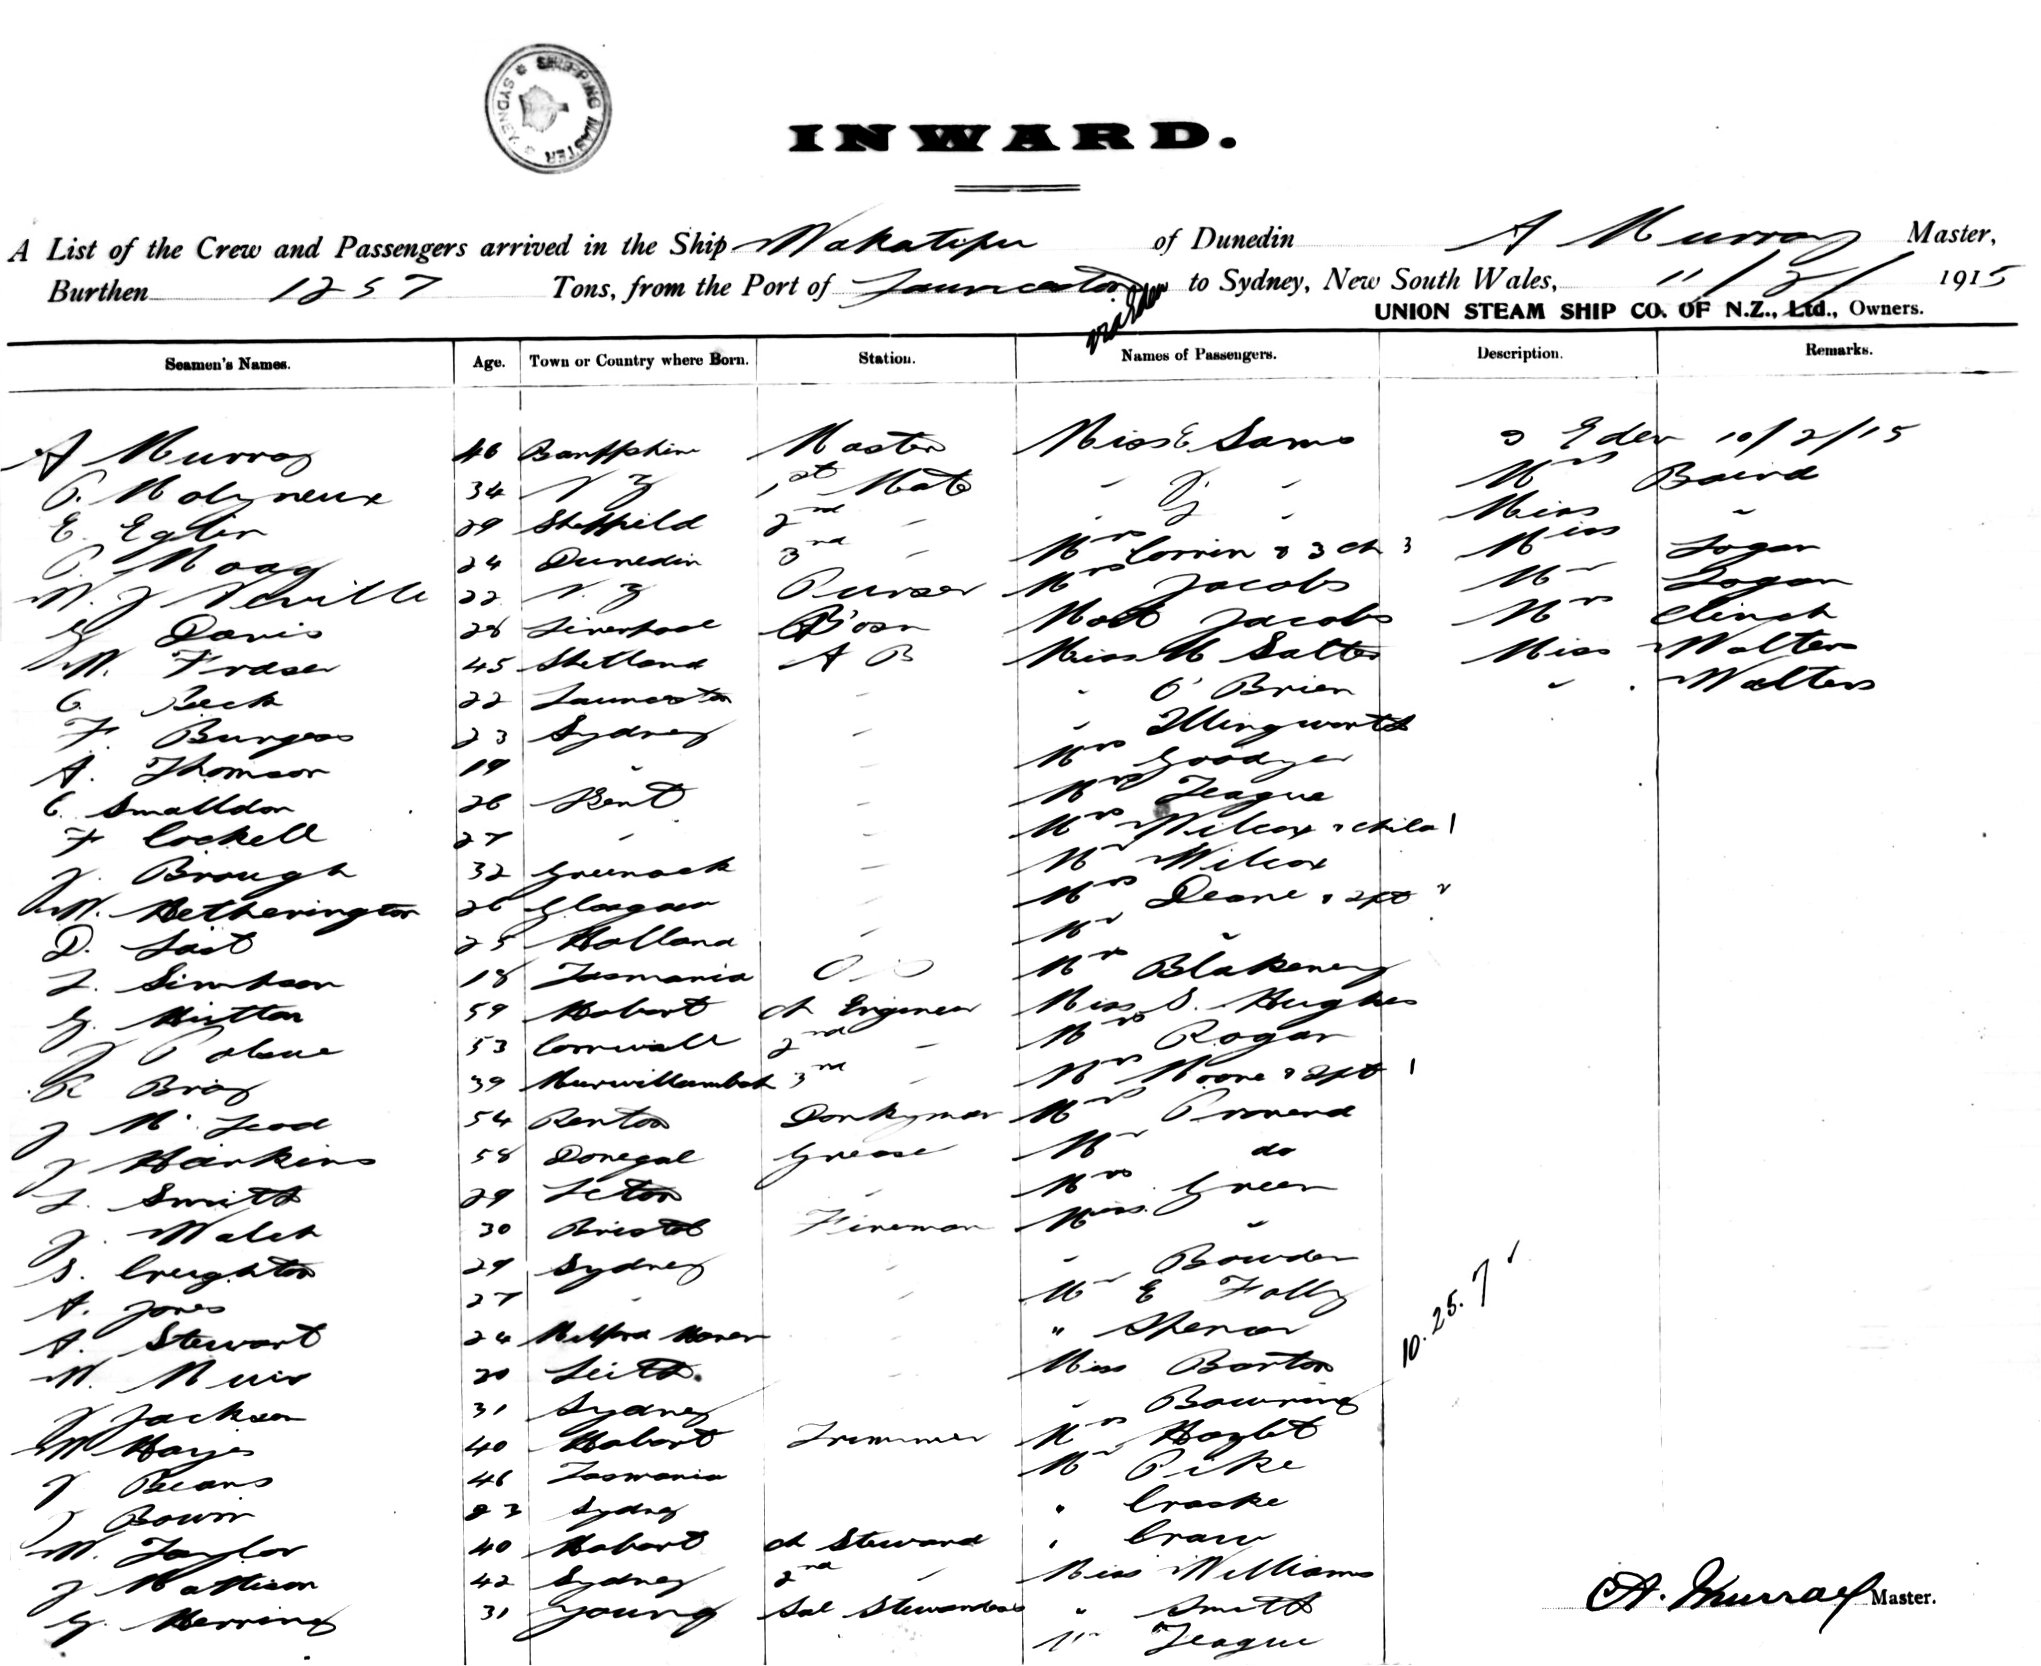 SHIPPING MASTER SYDNEY
INWARD.
A List of the Crew and Passengers arrived in the Ship Wakatipu of Dunedin A Murray Master,
Burthen 1257 Tons, from the Port of Launceston via Eden to Sydney, New South Wales, 11/2/1915
UNION STEAM SHIP CO. OF N.Z., Ltd., Owners.
Seamen's Names. Age. Town or Country where Born. Station. Names of Passengers. Description. Remarks.
A Murray 46 Banffshire Master Miss E Sams Eden 10/2/15
P. Molyneux 34 N Z 1st Mate " J " Mrs Baird
E. Eglin 29 Sheffield 2nd " " " Miss "
P. Hoag 24 Dunedin 3rd " Mrs Corrin & 3 ch 3 Miss Logan
W. J Neville 22 N. Z Purser Mrs Jacobs Mr Logan
G Davis 28 Liverpool B'osn Mast Jacobs Mrs Clinch
W. Fraser 45 Shetland A B Miss M Salter Miss Walters
C. Beck 22 Launceston " " O'Brien " Walters
F. Burgess 23 Sydney " " Illingworth
A. Thomson 19 " " Mrs Goodyer
C. Smalldon 26 Kent " Mrs Teague
F Cockell 27 " " Mrs Wilcox & child 1
J. Brough 32 Greenock " Mr Wilcox
W. Hetherington 26 Glasgow " Mrs Deane & 2
D. Last 25 Holland " Mr "
L. Simpson 18 Tasmania O S Mrs Blakeney
G. Hutton 59 Hobart ch Engineer Miss S. Hughes
J 53 Cornwall 2nd " Mrs Rogan
R Bray 39 Murwillumbah 3rd " Mrs Moore & 1
J McLeod 54 Renton Donkyman Mrs
J Harkins 58 Donegal Greaser Mr do
L. Smith 29 " Mrs Green
J. Walsh 30 Bristol Fireman Miss "
S. Creighton 29 Sydney " " Bowden
A. Jones 27 " " Mr E Folly
A. Stewart 24 Milford Haven " Spencer
W. Muir 20 Leith. " Miss Barton
J Jackson 31 Sydney " Bowring
W Hayes 40 Hobart Trimmer Mrs
J Beans 46 Tasmania Mr Pike
J Bown 23 Sydney " Craske
W. Taylor 40 Hobart ch Steward " Craw
J Mattison 42 Sydney 2nd " Miss Williams
G. Herring 31 Young Sal Stewardess " Smith
" Teague
10. 25. 7
A. Murray Master.